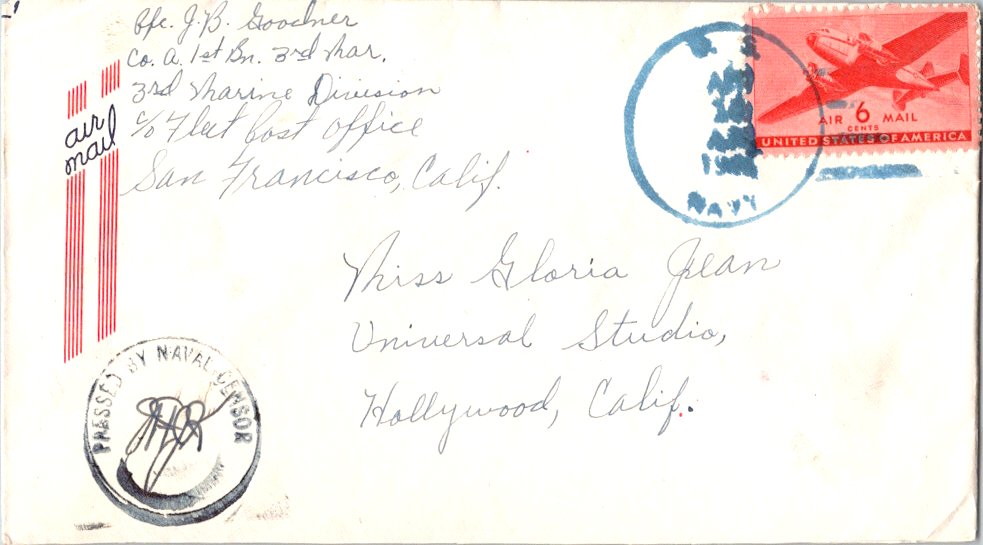 Pfc. J. B. Goodner
Co. A. 1st Bn. 3rd Mar.
3rd Marine Division
c/o Fleet Post Office
San Francisco, Calif.
air
mail
U. S.
19
NAVY
AIR 6 MAIL
CENTS
UNITED STATES OF AMERICA
Miss Gloria Jean
Universal Studio,
Hollywood, Calif.
PASSED BY NAVAL CENSOR